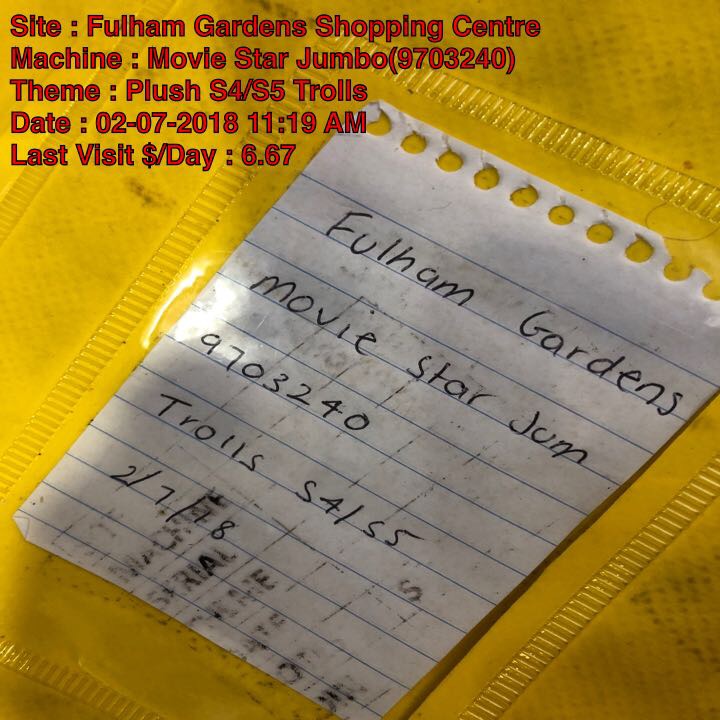 Site : Fulham Gardens Shopping Centre
Machine : Movie Star Jumbo(9703240)
Theme : Plush S4/S5 Trolls
Date : 02-07-2018 11:19 AM
Last Visit $/Day : 6.67
Fulham Gardens
movie star Jum
9703240
Trolls S4/S5
2/7/18